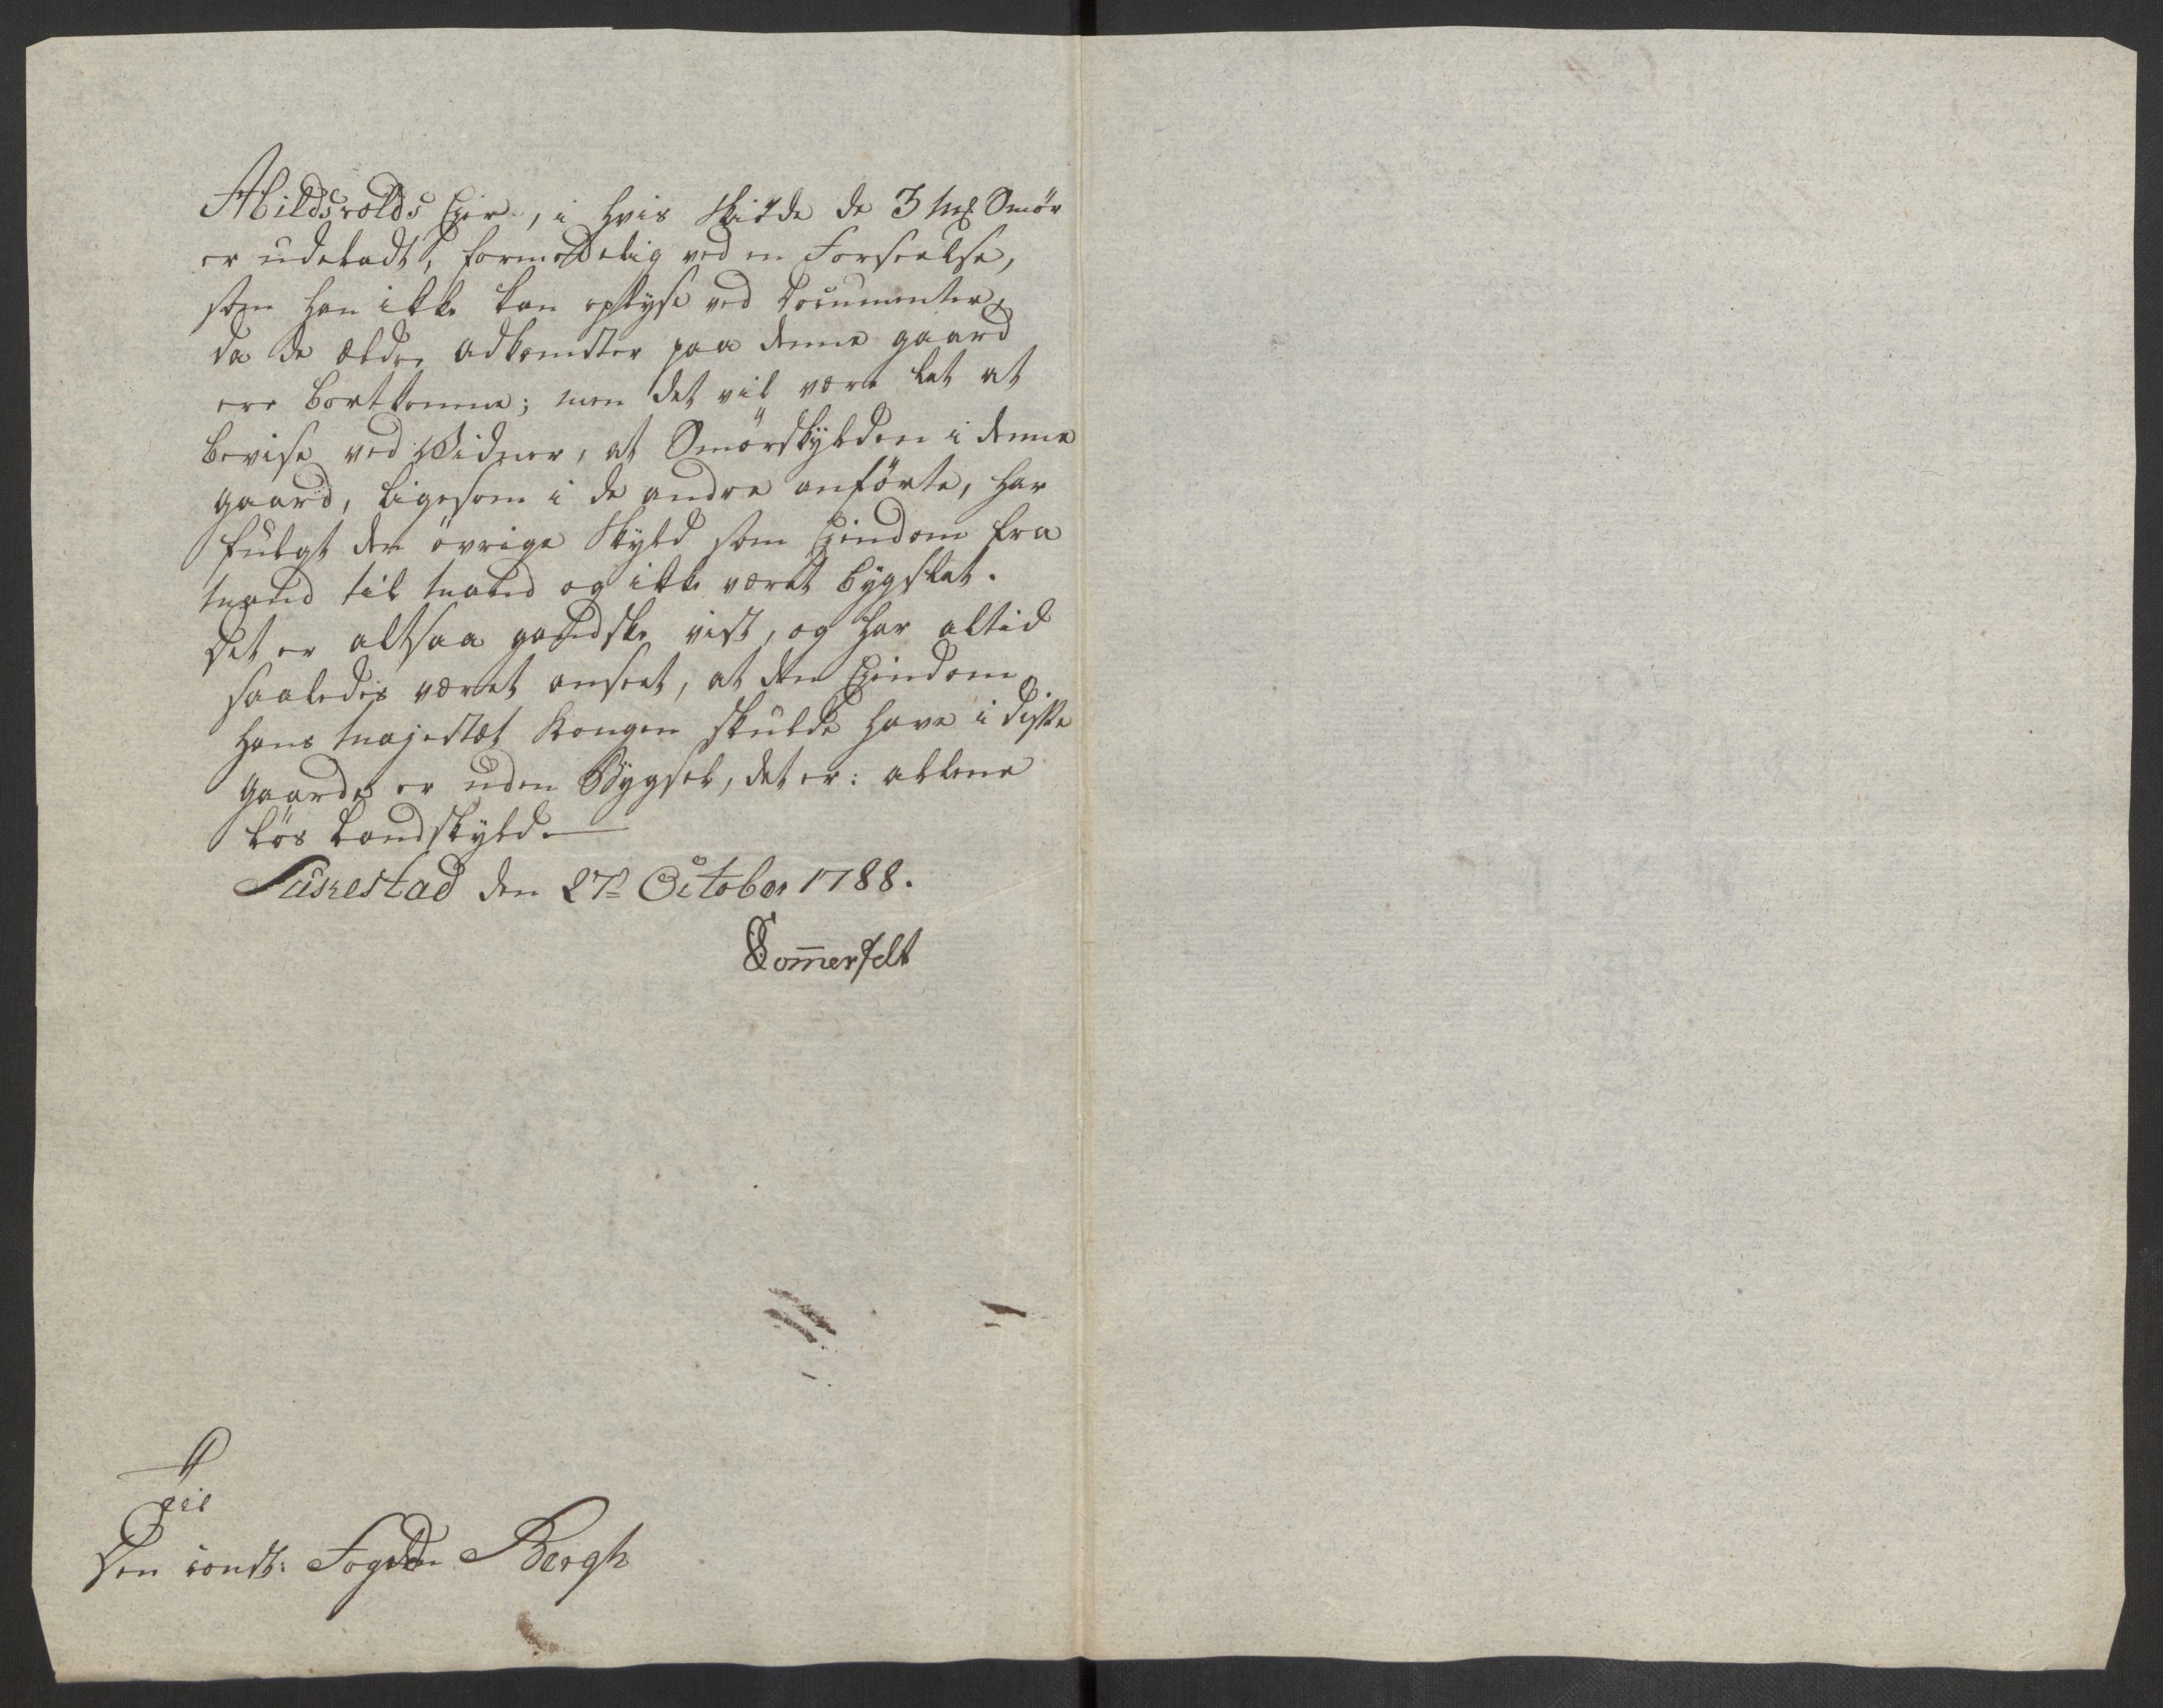 Abildsvolds Eier, i hvis Skiöde de 3 mk Smör
er udeladt, formodelig ved en Forseelse,
som han ikke kan oplyse ved Documenter,
da de ældre Adkomster paa denne gaard
ere bortkomne; men det vil være let at
bevise ved Vidner, at Smörskylden i denne
gaard, ligesom i de andre anförte, har
fulgt den övrige Skyld som Eiendom fra
mand til mand og ikke været bygslet.
Det er altsaa gandske vist, og har altid
saaledes været anseet, at den Eiendom
Hans Majestæt Kongen skulde have i disse
gaarde er uden Bygsel, det er: allene
lös Landskyld.
Sukkestad den 27de October 1788.
Som̄erfelt
Til
Den const: Fogden Bergh